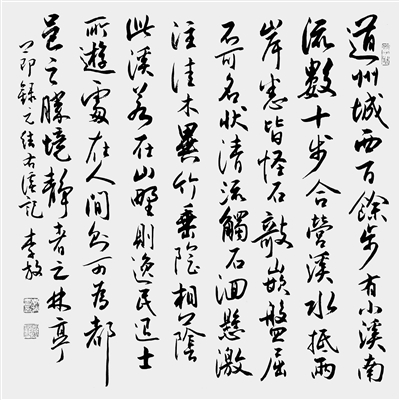 道州城西百餘步有小溪南
流數十步合營溪水抵兩
岸悉皆怪石欹嵌盤屈
不可名狀清流觸石洄懸激
注佳木異竹垂陰相蔭
此溪若在山野則逸民退士
所遊處在人間則可為都
邑之勝境靜者之林亭
節錄元結右溪記 李